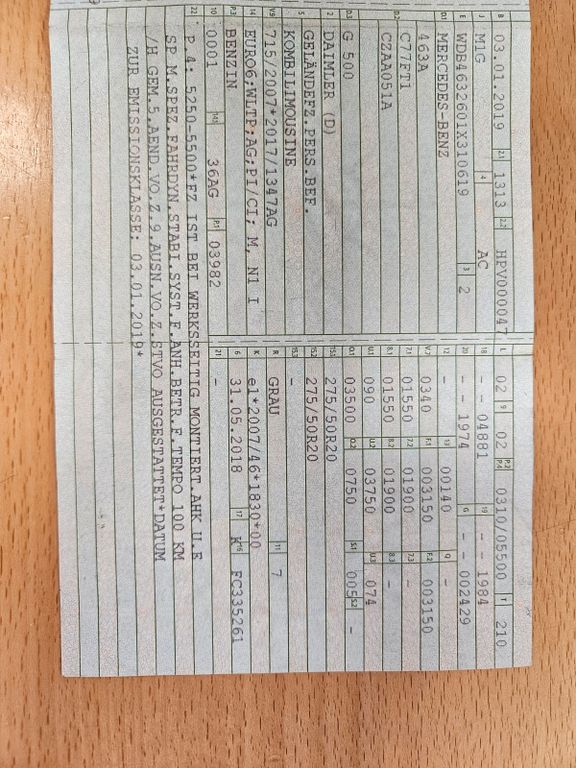 B 03.01.2019 2.1 1313 2.2 HPV000047
J M1G 4 AC
E WDB4632601X310619 3 2
D.1 MERCEDES-BENZ
463A
D.2 C77FT1
CZAA051A
D.3 G 500
2 DAIMLER (D)
5 GELÄNDEFZ.PERS.BEF.
KOMBILIMOUSINE
V.9 715/2007*2017/1347AG
14 EURO6;WLTP;AG;PI/CI; M, N1 I
P.3 BENZIN
10 0001 14.1 36AG P.1 03982
L 02 9 02 P.2 P.4 0310/05500 T 210
18 - - 04881 19 - - 1984
20 - - 1974 G - - 002429
12 - 13 00140 Q -
V.7 0340 F.1 003150 F.2 003150
7.1 01550 7.2 01900 7.3 -
8.1 01550 8.2 01900 8.3 -
U.1 090 U.2 03750 U.3 074
O.1 03500 O.2 0750 S.1 005 S.2 -
15.1 275/50R20
15.2 275/50R20
15.3 -
R GRAU 11 7
K e1*2007/46*1830*00
6 31.05.2018 17 K 16 FC335261
21 -
22 P.4: 5250-5500*FZ IST BEI WERKSSEITIG MONTIERT.AHK U.E
SP M.SPEZ.FAHRDYN.STABI.SYST.F.ANH.BETR.F.TEMPO 100 KM
/H GEM.5.AEND.VO.Z.9.AUSN.VO.Z.STVO AUSGESTATTET*DATUM
ZUR EMISSIONSKLASSE: 03.01.2019*